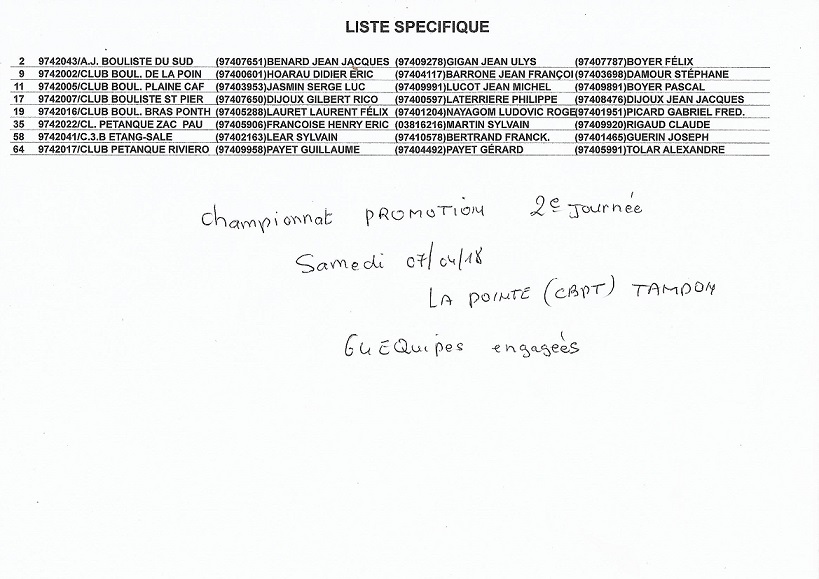 LISTE SPECIFIQUE
2 9742043/A.J. BOULISTE DU SUD (97407651)BENARD JEAN JACQUES (97409278)GIGAN JEAN ULYS (97407787)BOYER FÉLIX
9 9742002/CLUB BOUL. DE LA POIN (97400601)HOARAU DIDIER ERIC (97404117)BARRONE JEAN FRANÇOI(97403698)DAMOUR STÉPHANE
11 9742005/CLUB BOUL. PLAINE CAF (97403953)JASMIN SERGE LUC (97409991)LUCOT JEAN MICHEL (97409891)BOYER PASCAL
17 9742007/CLUB BOULISTE ST PIER (97407650)DIJOUX GILBERT RICO (97400597)LATERRIERE PHILIPPE (97408476)DIJOUX JEAN JACQUES
19 9742016/CLUB BOUL. BRAS PONTH (97405288)LAURET LAURENT FÉLIX (97401204)NAYAGOM LUDOVIC ROGE(97401951)PICARD GABRIEL FRED.
35 9742022/CL. PETANQUE ZAC PAU (97405906)FRANCOISE HENRY ERIC (03816216)MARTIN SYLVAIN (97409920)RIGAUD CLAUDE
58 9742041/C.3.B ETANG-SALE (97402163)LEAR SYLVAIN (97410578)BERTRAND FRANCK. (97401465)GUERIN JOSEPH
64 9742017/CLUB PETANQUE RIVIERO (97409958)PAYET GUILLAUME (97404492)PAYET GÉRARD (97405991)TOLAR ALEXANDRE
Championnat PROMOTION 2e Journée
Samedi 07/04/18
LA POINTE (CBPT) TAMPON
64 EQuipes engagées